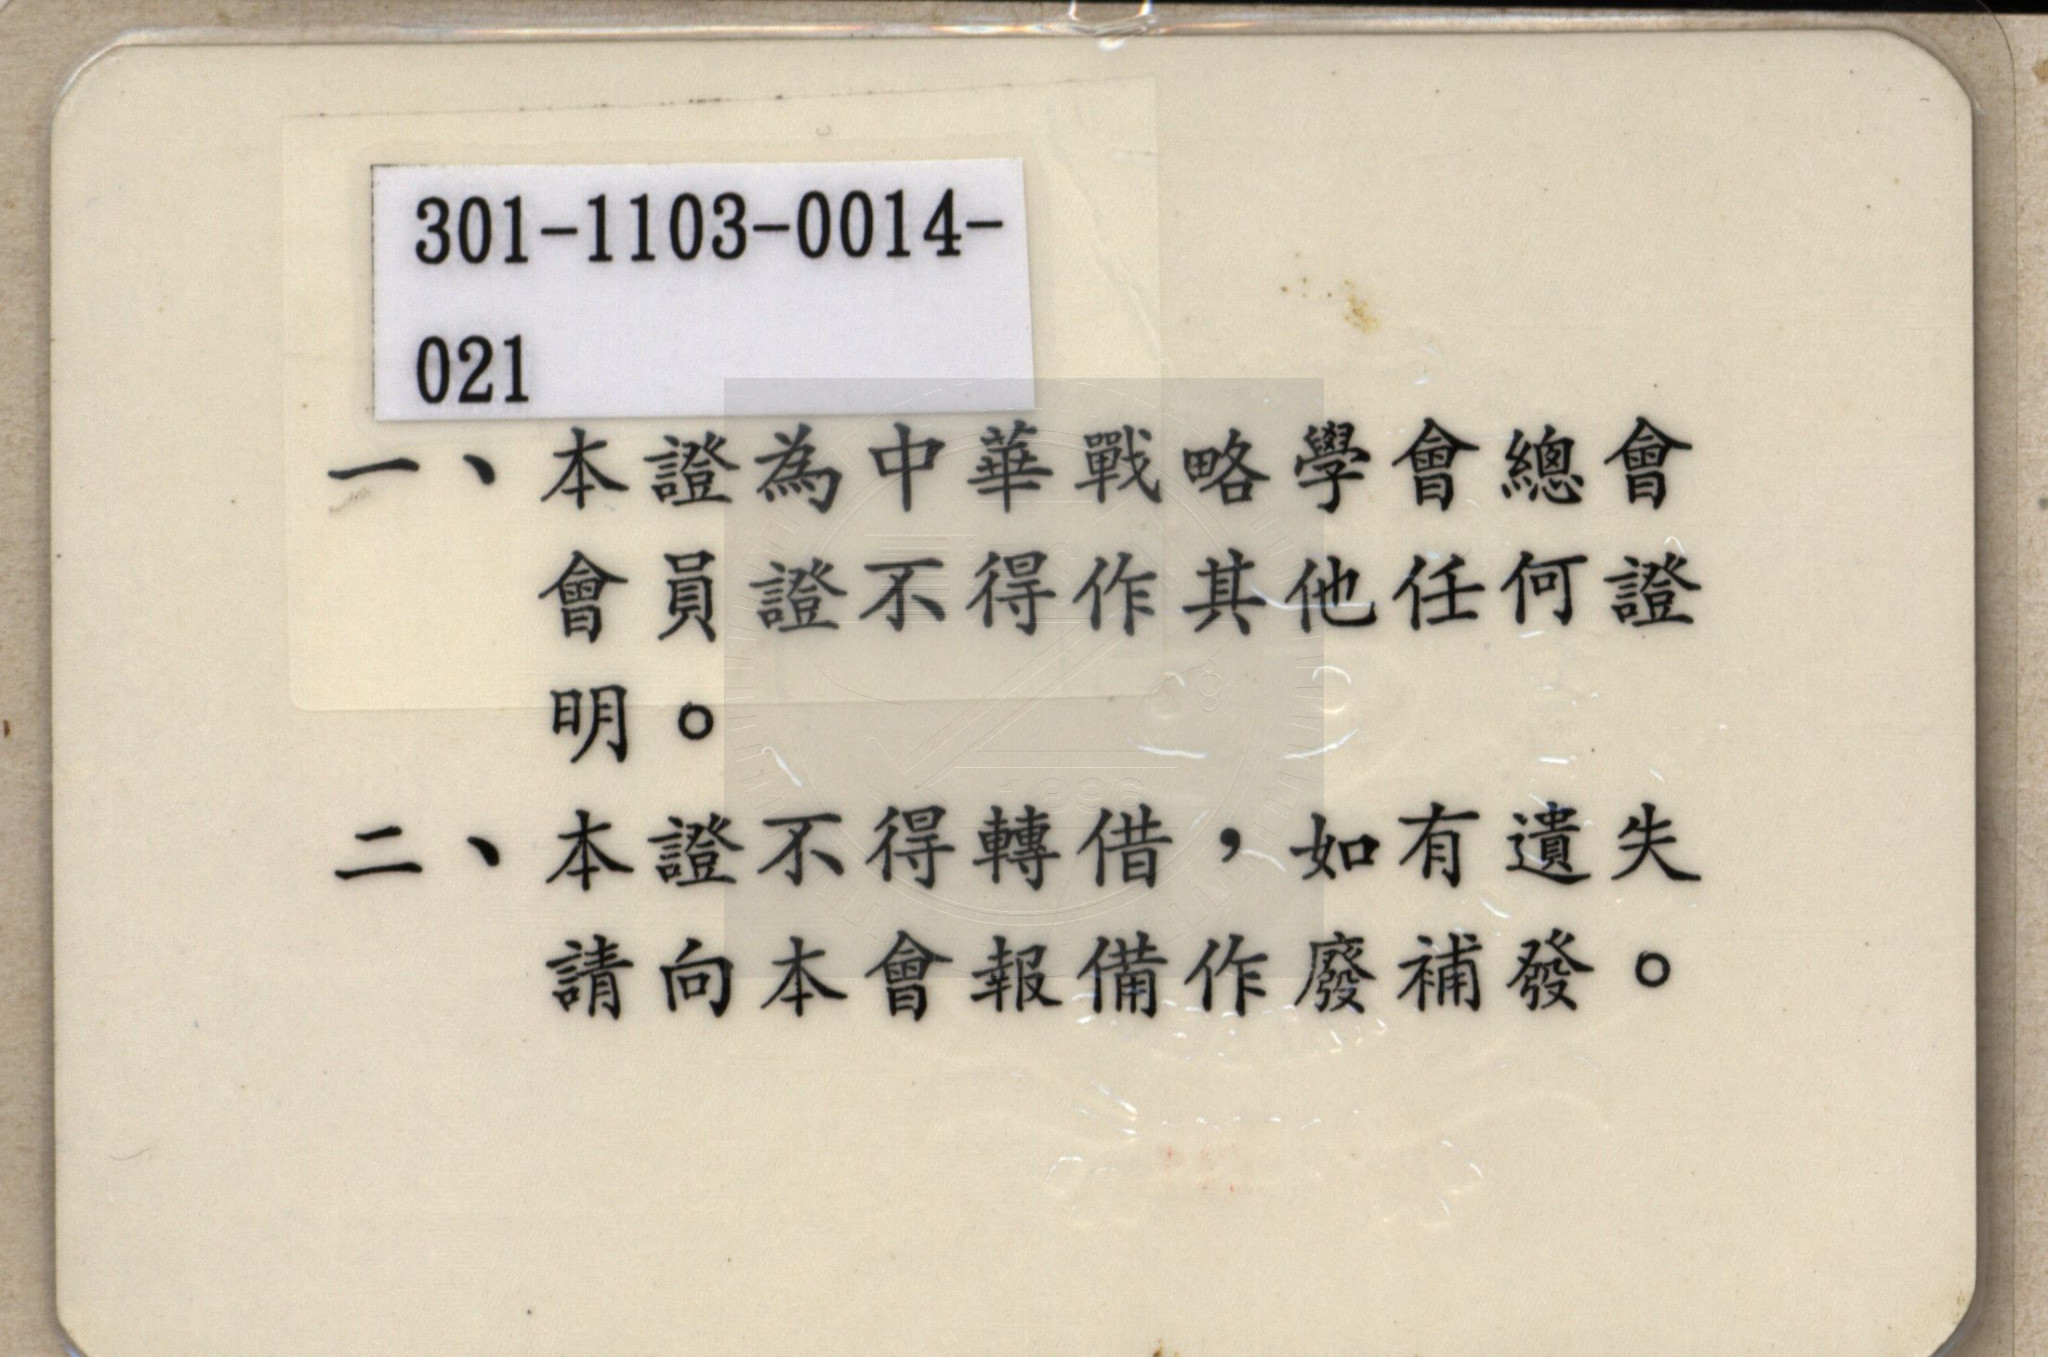 301-1103-0014-
021
一、本證為中華戰略學會總會
會員證不得作其他任何證
明。
二、本證不得轉借，如有遺失
請向本會報備作廢補發。
1896